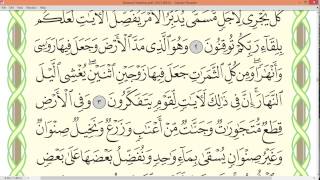 كُلٌّ يَجْرِي لِأَجَلٍ مُّسَمًّى يُدَبِّرُ الْأَمْرَ يُفَصِّلُ الْآيَاتِ لَعَلَّكُم
بِلِقَاءِ رَبِّكُمْ تُوقِنُونَ ٢ وَهُوَ الَّذِي مَدَّ الْأَرْضَ وَجَعَلَ فِيهَا رَوَاسِيَ
وَأَنْهَارًا وَمِن كُلِّ الثَّمَرَاتِ جَعَلَ فِيهَا زَوْجَيْنِ اثْنَيْنِ يُغْشِي اللَّيْلَ
النَّهَارَ إِنَّ فِي ذَٰلِكَ لَآيَاتٍ لِّقَوْمٍ يَتَفَكَّرُونَ ٣ وَفِي الْأَرْضِ
قِطَعٌ مُّتَجَاوِرَاتٌ وَجَنَّاتٌ مِّنْ أَعْنَابٍ وَزَرْعٌ وَنَخِيلٌ صِنْوَانٌ
وَغَيْرُ صِنْوَانٍ يُسْقَىٰ بِمَاءٍ وَاحِدٍ وَنُفَضِّلُ بَعْضَهَا عَلَىٰ بَعْضٍ